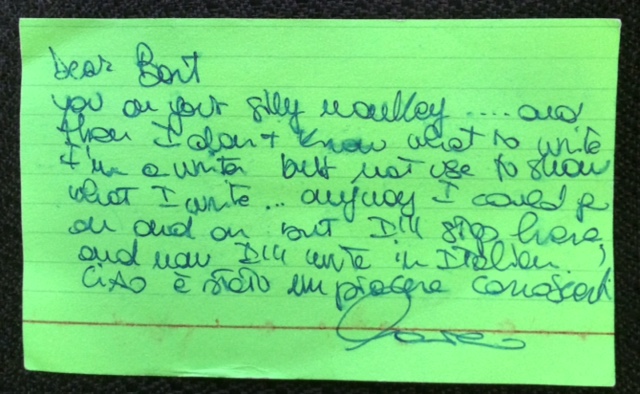 Dear Bart
you on your silly monkey .... and
then I don't know what to write
I'm a writer but not use to show
what I write... anyway I could go
on and on but I'll stop here,
and now I'll write in Italian.
CIAO è stato un piacere conoscerti